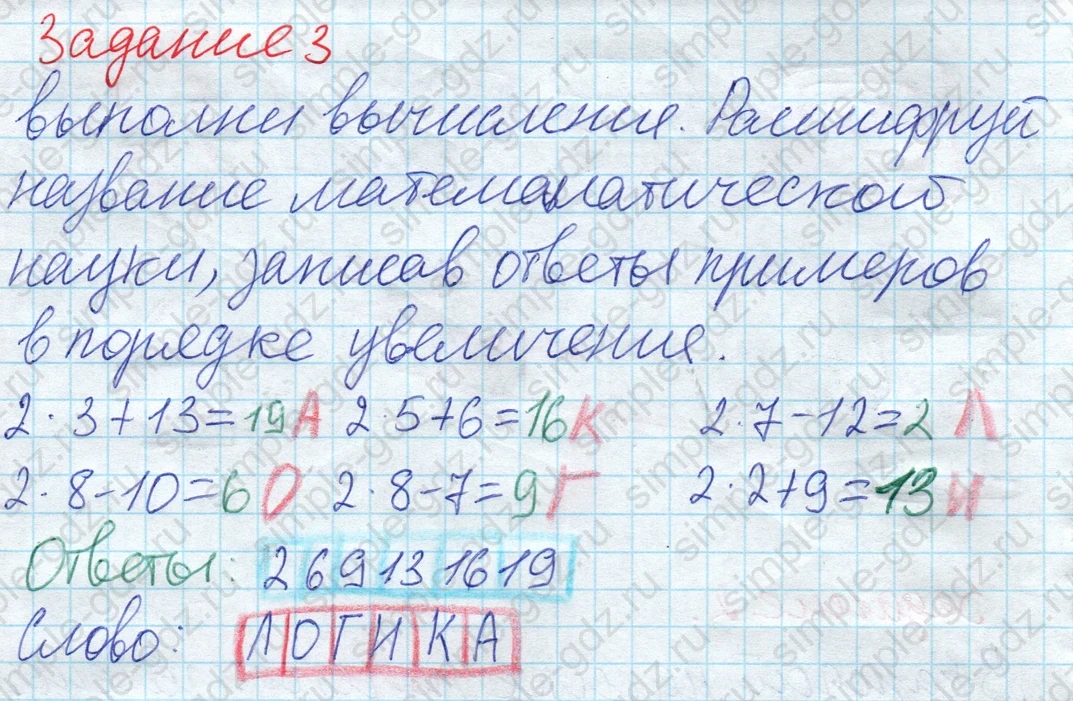 Задание 3
выполни вычисления. Расшифруй
название математической
науки, записав ответы примеров
в порядке увеличения.
2·3+13=19 А 2·5+6=16 К 2·7-12=2 Л
2·8-10=6 О 2·8-7=9 Г 2·2+9=13 И
Ответы: 2 6 9 13 16 19
Слово: Л О Г И К А